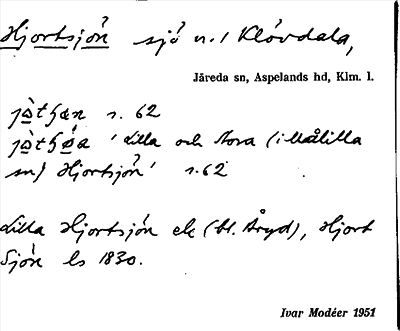 Hjortsjön sjö n. / Klövdala,
Järeda sn, Aspelands hd, Klm. l.
s. 62
'Lilla och Stora (i Målilla
sn) Hjortsjön' s. 62
Lilla Hjortsjön ek (bl. Åryd), Hjort
Sjön ls 1830.
Ivar Modéer 1951